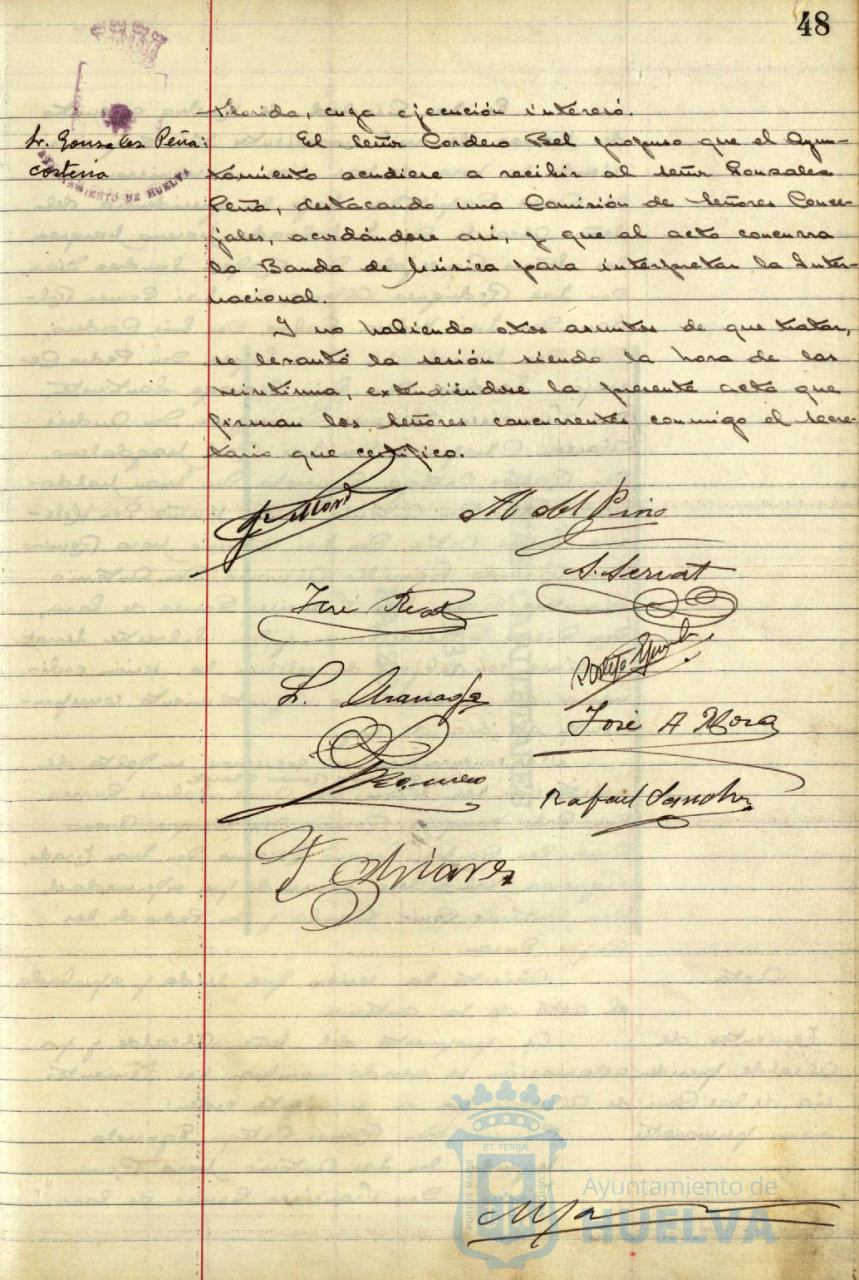 48
Florida, cuya ejecución interesó.
Sr. Gonzales Peña:
cortesía
AYUNTAMIENTO DE HUELVA
El Señor Cordero Bel propuso que el Ayun-
tamiento acudiese a recibir al señor Gonzales
Peña, destacando una Comisión de Señores Conce-
jales, acordándose así, y que al acto concurra
la Banda de Música para interpretar la Inter-
nacional.
Y no habiendo otros asuntos de que tratar,
se levantó la sesión siendo la hora de las
veintiuna, extendiéndose la presente acta que
firman los Señores concurrentes conmigo el secre-
tario que certifico.
M del Pino
S. Serrat
José Real
José A Mora
Romero
Rafael Sanchez
ET TERRÆ
PORTUS MARIS
CUSTODIA
Ayuntamiento de
HUELVA